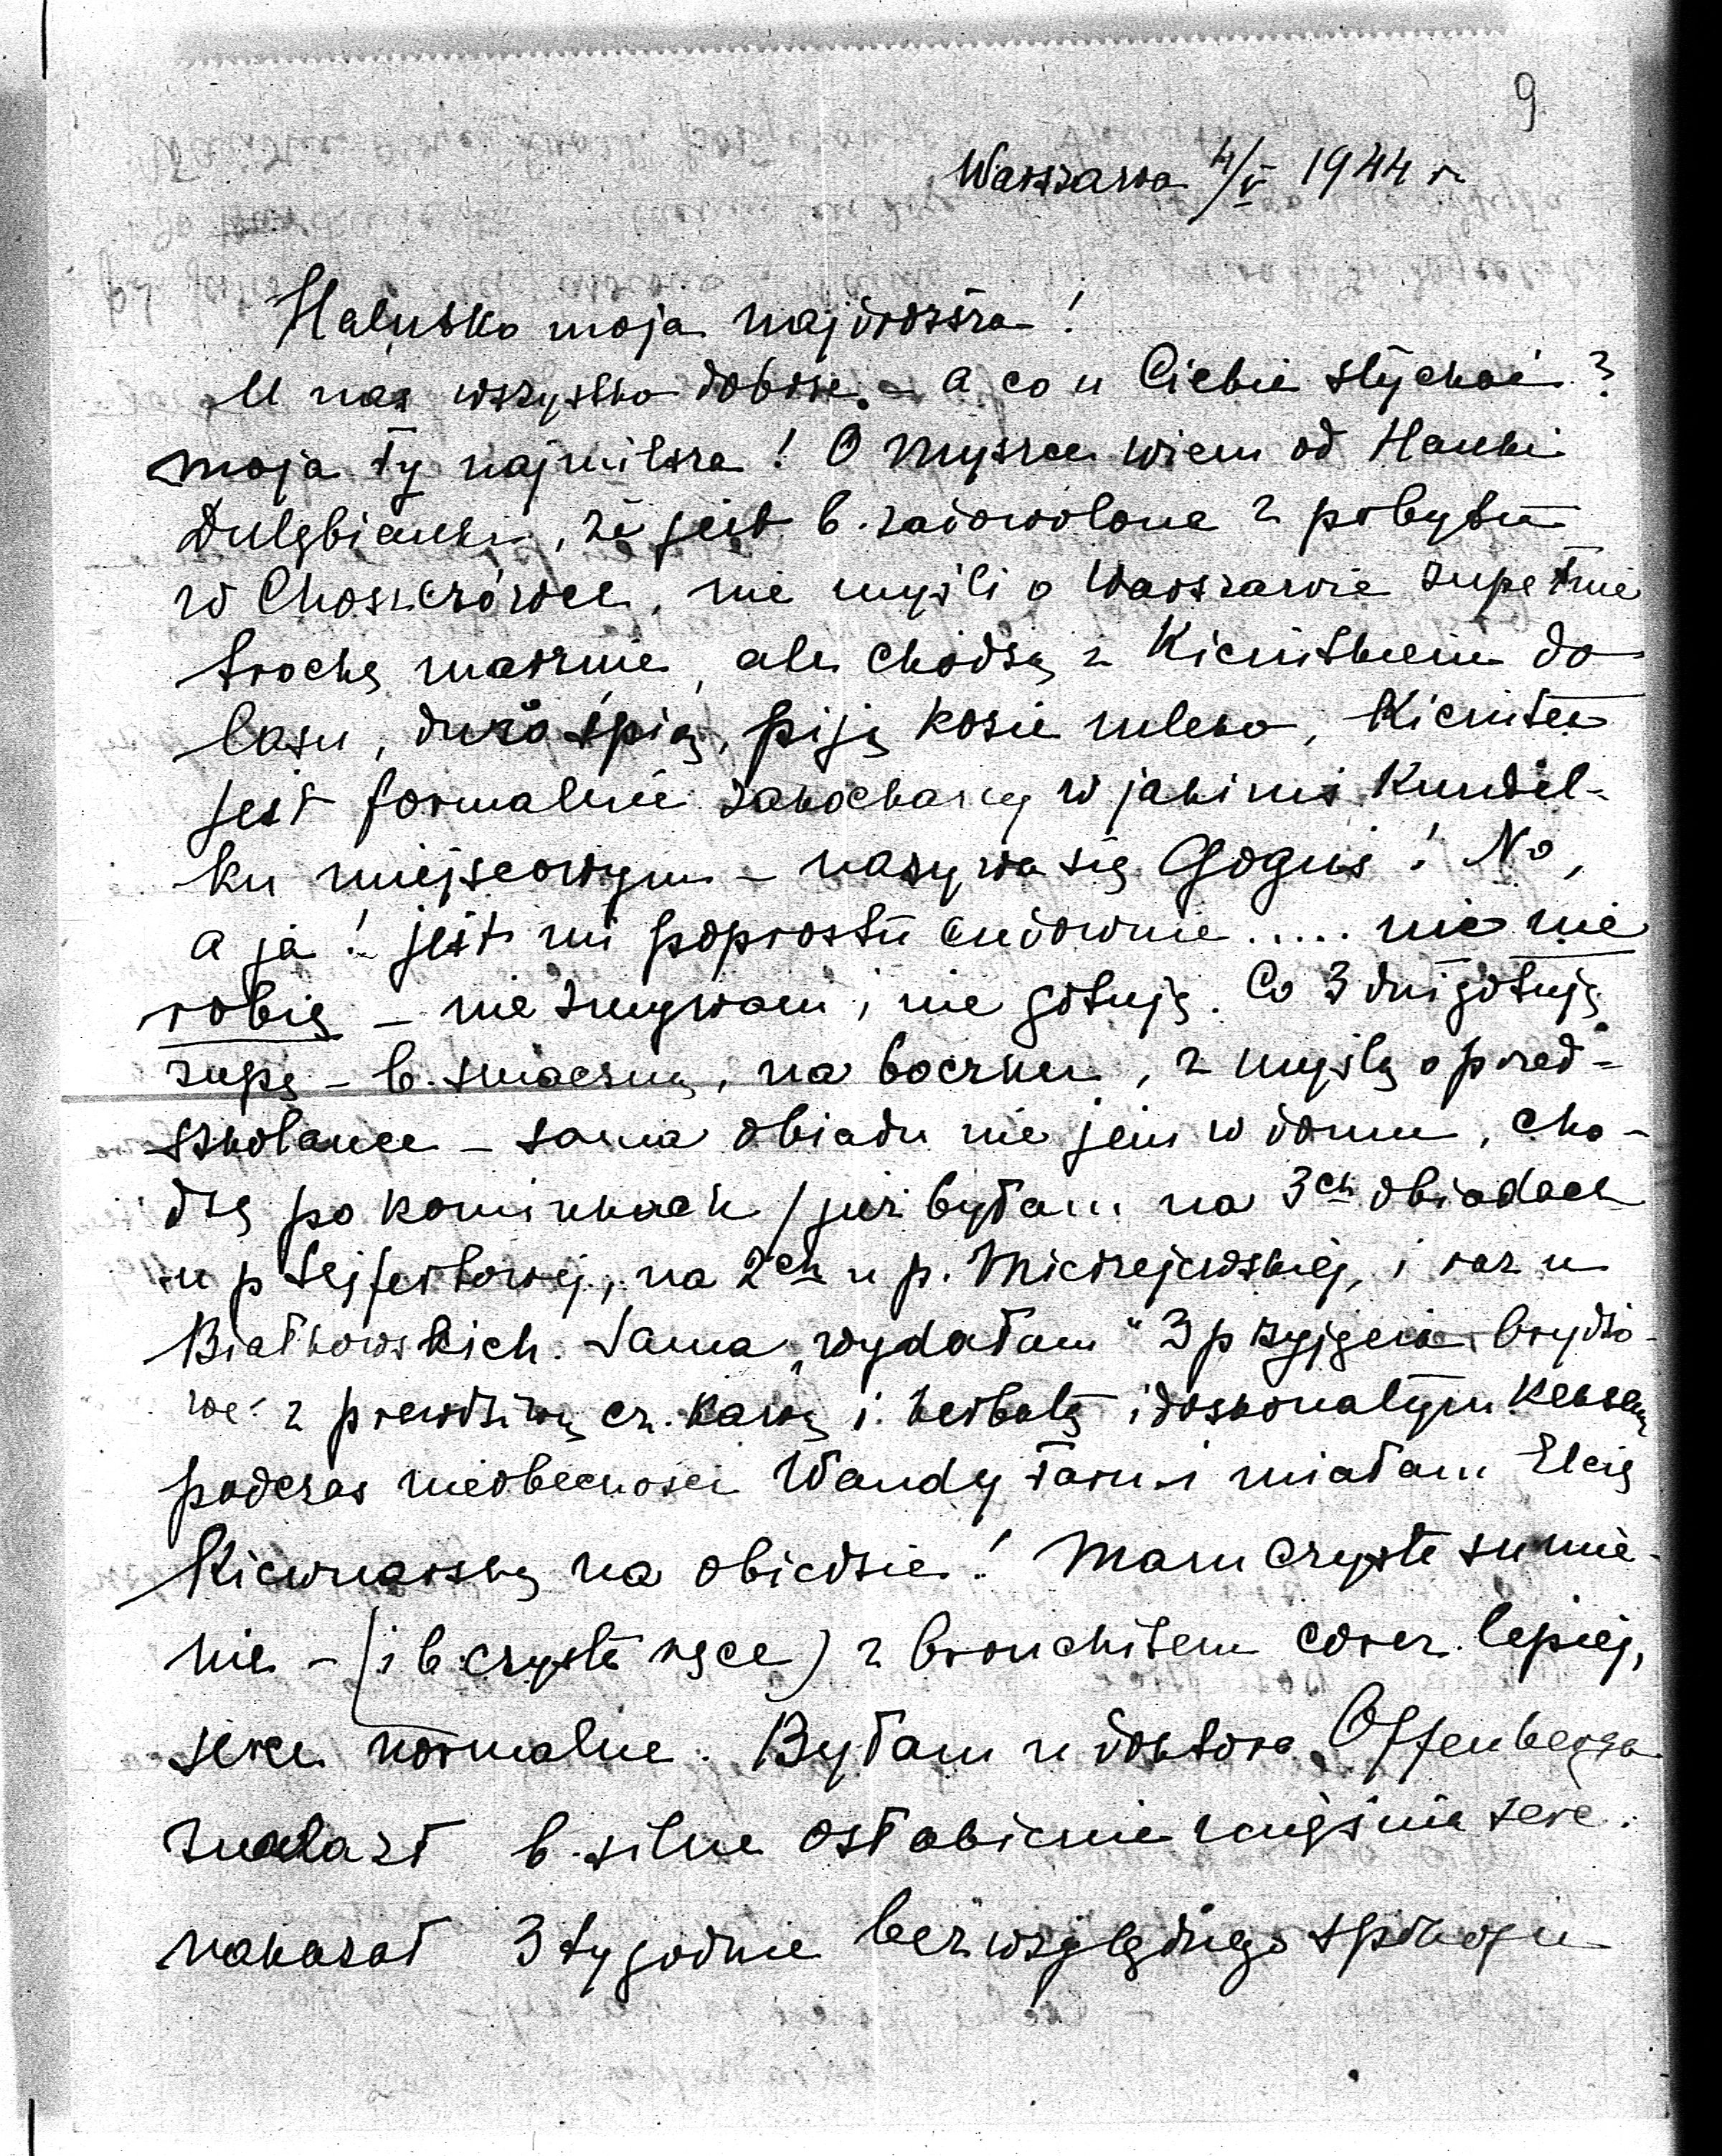 9
Warszawa 4/V 1944 r
Haluśko moja najdroższa!
U nas wszystko dobrze. – a co u Ciebie słychać?
moja Ty najmilsza! O Myszce wiem od Hanki
, że jest b. zadowolona z pobytu
w Choszczówce, nie myśli o Warszawie zupełnie
trochę marznie, ale chodzą z Kicusikiem do
lasu, dużo śpią, piją kozie mleko,
jest formalnie zakochany w jakimś kundel-
ku miejscowym – nazywa się Goguś! No,
a ja! jest mi poprostu cudownie ..... nic nie
robię – nie zmywam, nie gotuję. Co 3 dni gotuję
zupę – b. smaczną, na boczku, z myślą o przed-
szkolance – sama obiadu nie jem w domu, cho-
dzę po kominkach / już byłam na 3ch obiadach
u p Sejfertowej, na 2ch u p. , i raz u
Białkowskich. Sama „wydałam" 3 przyjęcia brydżo-
we z prawdziwą cz. kawą i herbatą i doskonałym keksem
podczas nieobecności Wandy miałam Elcię
Kiewnarską na obiedzie! Mam czyste sumie-
nie – (i b. czyste ręce) z bronchitem coraz lepiej,
serce normalne. Byłam u doktora Offenberga
znalazł b. silne osłabienie mięśnia serc.
nakazał 3 tygodnie bezwzględnego spokoju